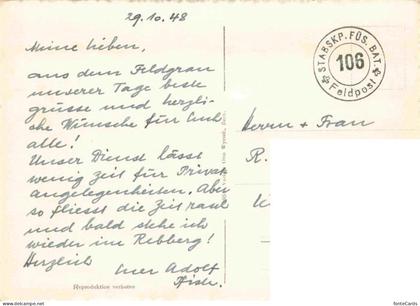 29.10.48
Meine lieben,
aus dem Feldgrau
unserer Tage beste
grüsse und herzli-
che Wünsche für Euch
alle!
Unser Dienst lässt
wenig Zeit für Privat
angelegenheiten. Aber
so fliesst die Zeit rasch
und bald stehe ich
wieder im Rebberg!
Herzlich
Euer Adolf
Reproduktion verboten
STABSKP. FÜS. BAT.
106
Feldpost
Herrn + Frau
R.